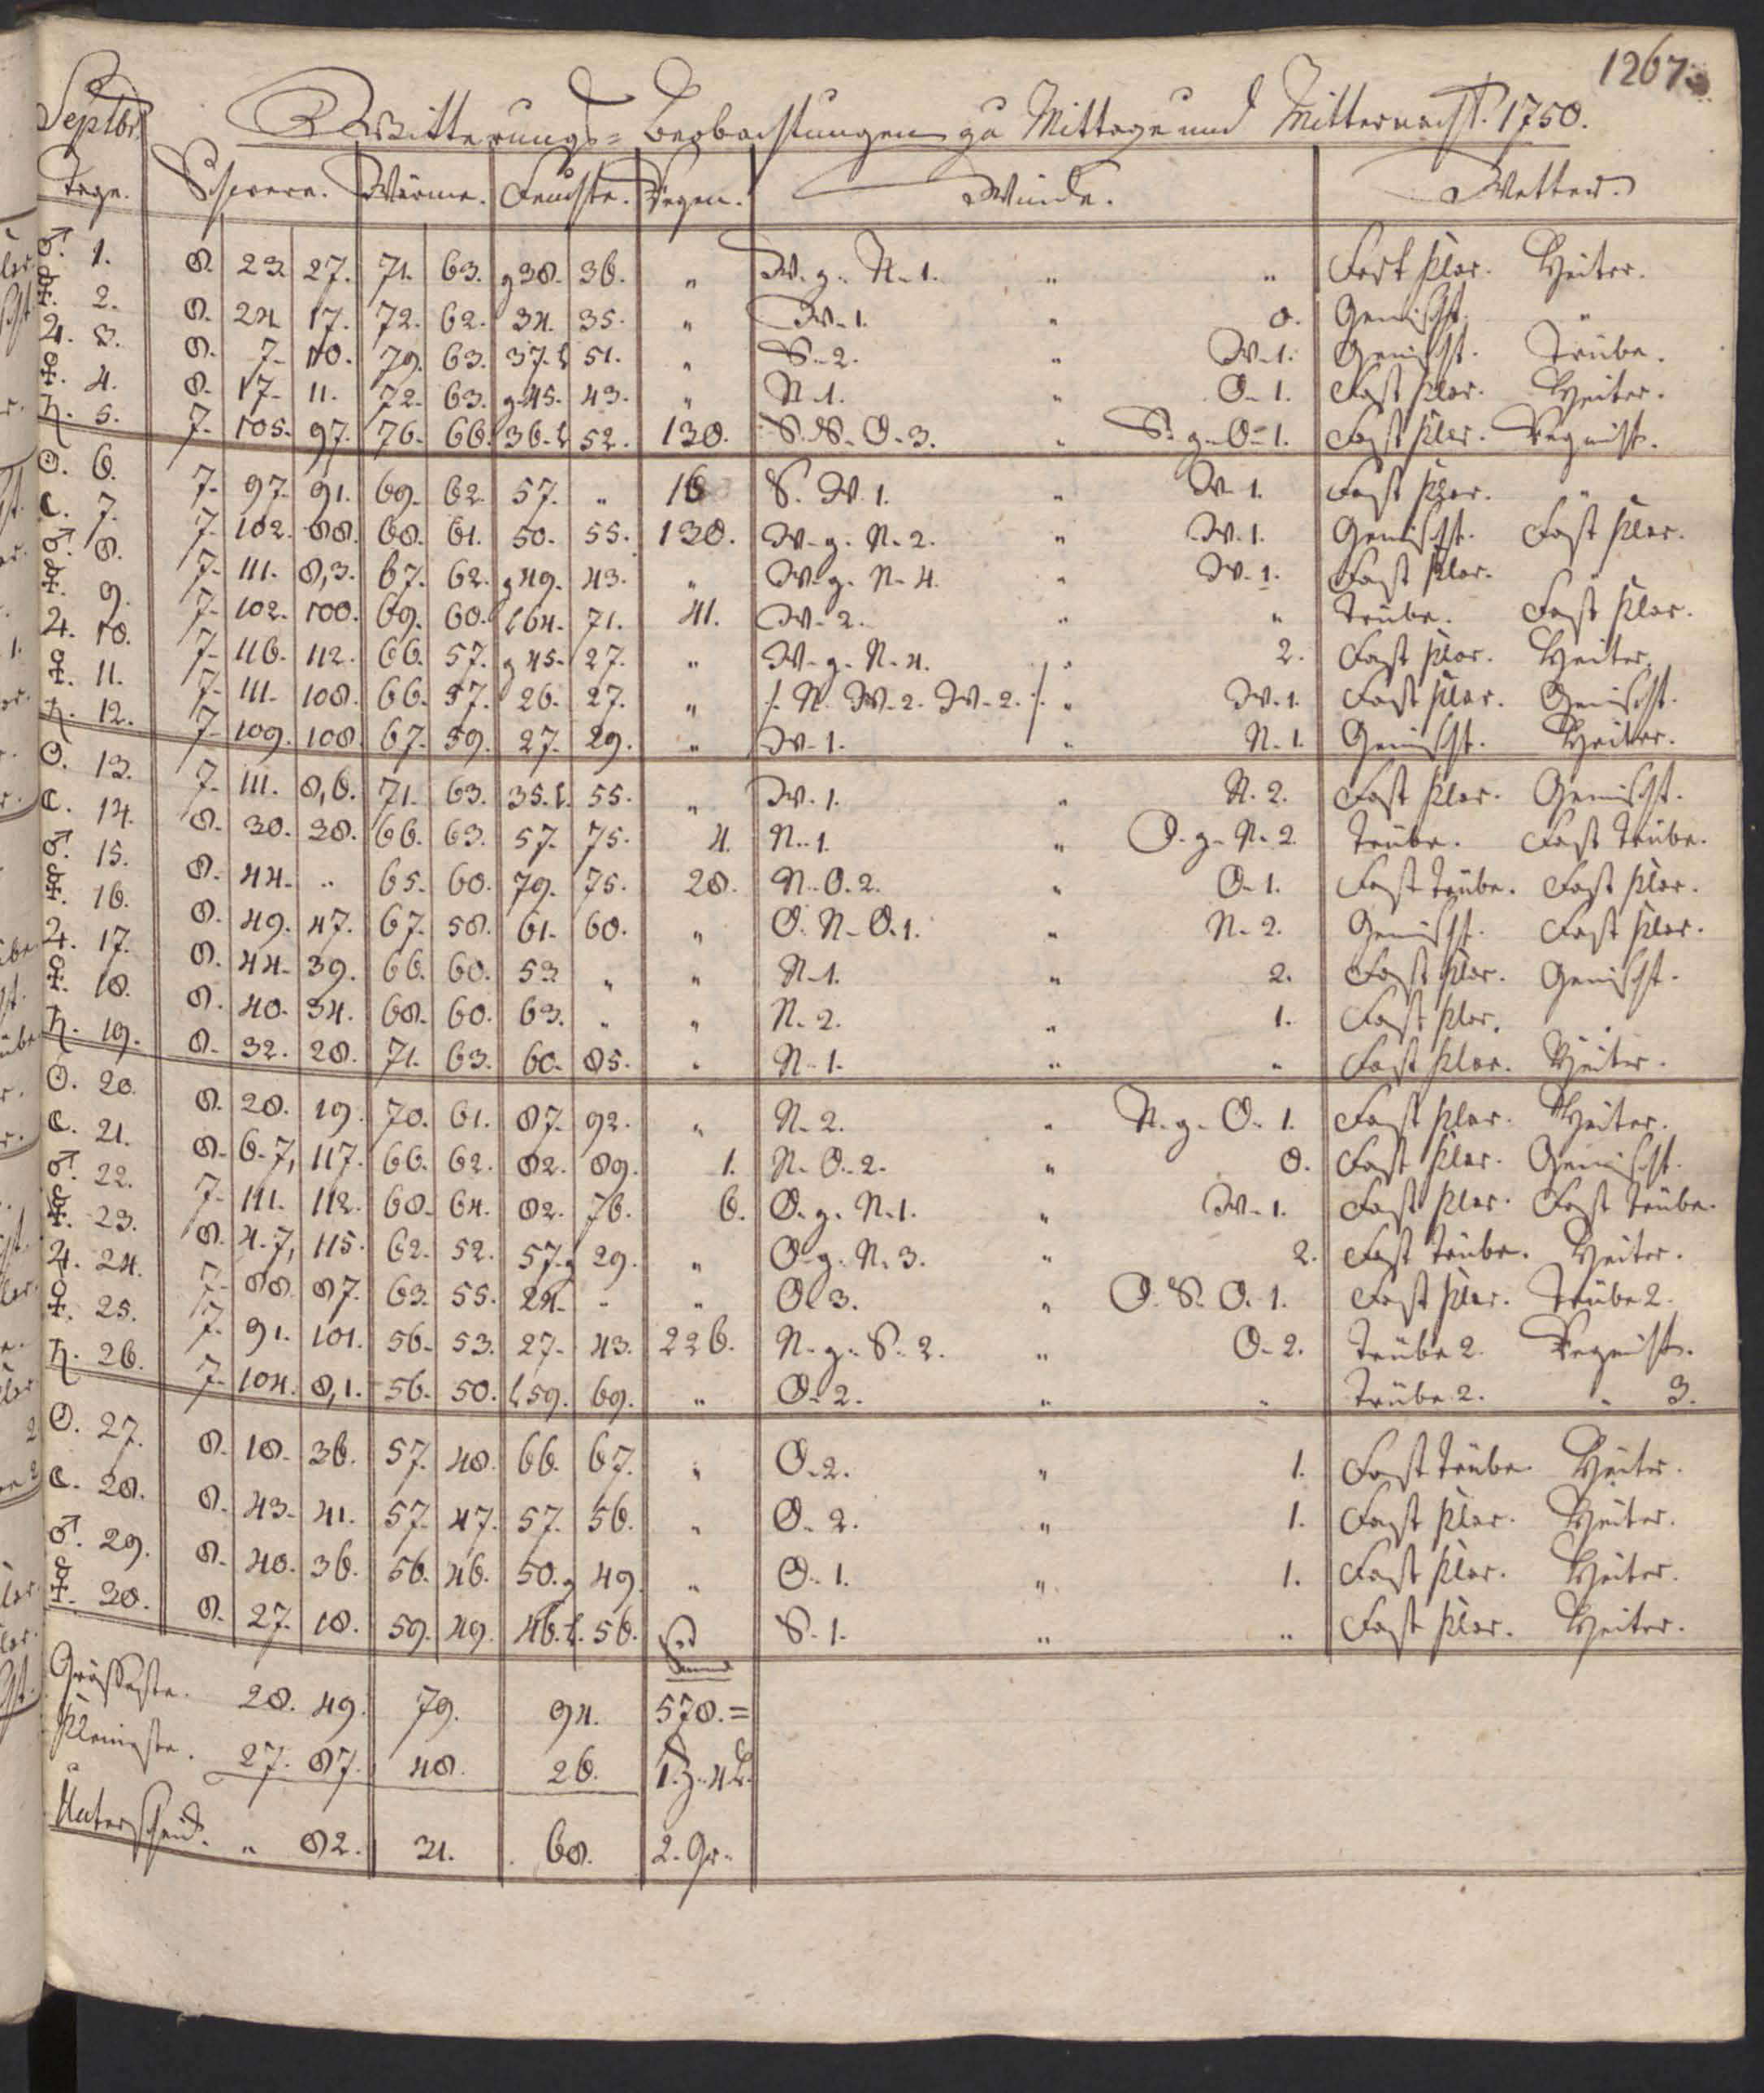 1267
Septbr. Witterungs= Beobachtungen zu Mittage und Mitternacht. 1750.
Tage. Schwere. Wärme. Feuchte. Regen. Winde. Wetter.
♂. 1. 8. 23. 27. 71. 63. g 38. 36. " W. g. N. 1. " " Fast klar. Heiter.
☿. 2. 8. 24. 17. 72. 62. 34. 35. " W. 1. " 0. Gemischt. "
♃. 3. 8. 7. 10. 79. 63. 37. l 51. " S. 2. " W. 1. Gemischt. Trübe.
♀. 4. 8. 17. 11. 72. 63. g 45. 43. " N. 1. " O. 1. Fast klar. Heiter.
♄. 5. 7. 105. 97. 76. 66. 36. l 52. 130. S. S. O. 3. " S. g. O. 1. Fast klar. Regnicht.
☉. 6. 7. 97. 91. 69. 62. 57. " 16 S. W. 1. " W. 1. Fast klar. "
☾. 7. 7. 102. 88. 68. 61. 50. 55. 130. W. g. N. 2. " W. 1. Gemischt. Fast klar.
♂. 8. 7. 111. 8,3. 67. 62. g 49. 43. " W. g. N. 4. " W. 1. Fast klar. "
☿. 9. 7. 102. 100. 69. 60. l 64. 71. 41. W. 2. " " Trübe. Fast klar.
♃. 10. 7. 116. 112. 66. 57. g 45. 27. " W. g. N. 4. " 2. Fast klar. Heiter.
♀. 11. 7. 111. 108. 66. 57. 26. 27. " /. N. W. 2. W. 2. /. " W. 1. Fast klar. Gemischt.
♄. 12. 7. 109. 108. 67. 59. 27. 29. " W. 1. " N. 1. Gemischt. Heiter.
☉. 13. 7. 111. 8,6. 71. 63. 35. l. 55. " W. 1. " N. 2. Fast klar. Gemischt.
☾. 14. 8. 30. 38. 66. 63. 57. 75. 4. N. 1. " O. g. N. 2. Trübe. Fast Trübe.
♂. 15. 8. 44. " 65. 60. 79. 75. 28. N. O. 2. " O. 1. Fast Trübe. Fast klar.
☿. 16. 8. 49. 47. 67. 58. 61. 60. " O. N. O. 1. " N. 2. Gemischt. Fast klar.
♃. 17. 8. 44. 39. 66. 60. 53. " " N. 1. " 2. Fast klar. Gemischt.
♀. 18. 8. 40. 34. 68. 60. 63. " " N. 2. " 1. Fast klar.
♄. 19. 8. 32. 28. 71. 63. 60. 85. " N. 1. " " Fast klar. Heiter.
☉. 20. 8. 28. 19. 70. 61. 87. 92. " N. 2. " N. g. O. 1. Fast klar. Heiter.
☾. 21. 8. 6. 7, 117. 66. 62. 82. 89. 1. N. O. 2. " 0. Fast klar. Gemischt.
♂. 22. 7. 111. 112. 68. 64. 82. 76. 6. O. g. N. 1. " W. 1. Fast klar. Fast Trübe.
☿. 23. 8. 4. 7, 115. 62. 52. 57. g 29. " O. g. N. 3. " 2. Fast Trübe. Heiter.
♃. 24. 7. 88. 87. 63. 55. 24. " " O. 3. " O. S. O. 1. Fast klar. Trübe 2.
♀. 25. 7. 91. 101. 56. 53. 27. 43. 226. N. g. S. 2. " O. 2. Trübe 2. Regnicht.
♄. 26. 7. 104. 8,1. 56. 50. l 59. 69. " O. 2. " " Trübe 2. " 3.
☉. 27. 8. 18. 36. 57. 48. 66. 67. " O. 2. " 1. Fast Trübe Heiter.
☾. 28. 8. 43. 41. 57. 47. 57. 56. " O. 2. " 1. Fast klar. Heiter.
♂. 29. 8. 40. 36. 56. 46. 50. g 49. " O. 1. " 1. Fast klar. Heiter.
☿. 30. 8. 27. 18. 59. 49. 46. l. 56. S. 1. " " Fast klar. Heiter.
Summ
Grösseste. 28. 49. 79. 94. 578. =
Kleineste. 27. 87. 48. 26. 1. Z. 4 L.
Unterscheid. " 82. 31. 68. 2. Gr.